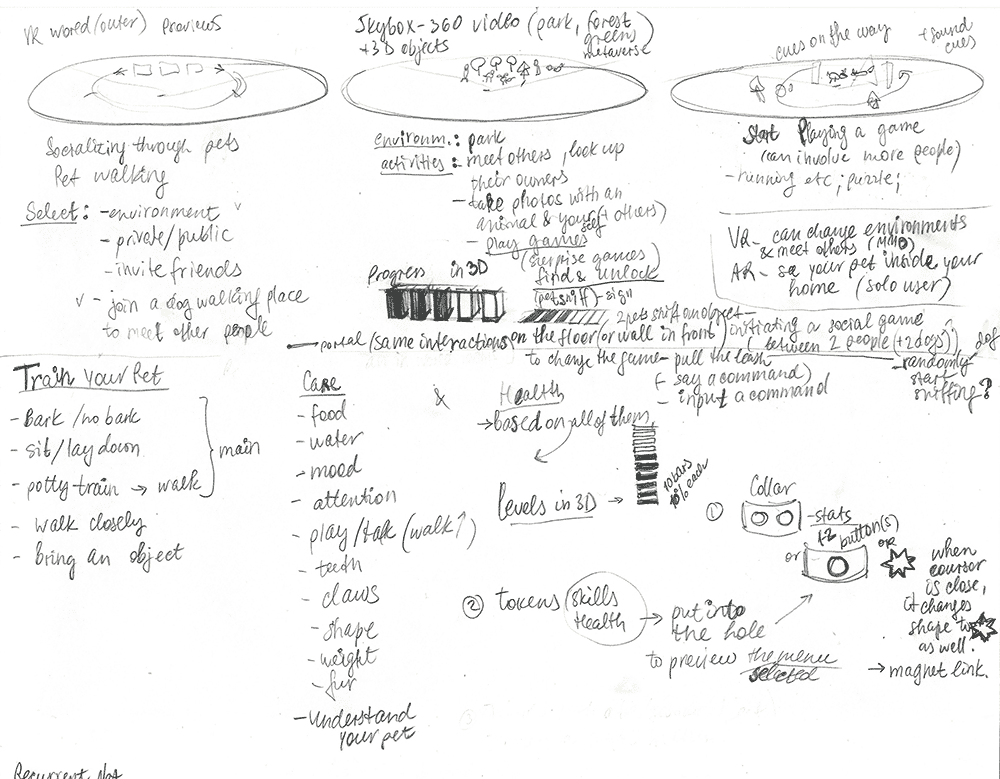 VR world/outer) previews
Socializing through pets
Pet walking
Select: - environment v
- private/public
- invite friends
v - join a dog walking place
to meet other people
Skybox - 360 video (park, forest
greens)
+3D objects
metaverse
environm.: park
activities: - meet others, look up
their owners
- take photos with an
animal & yourself (+ others)
- play games
(surprise games)
find & unlock
(pet sniff) - sign
Progress in 3D
2 pets
→ portal (same interactions on the floor (or wall in front)
to change the game - pull the leash
(- say a command)
- input a command
cues on the way
+ sound
cues
Start Playing a game
(can involve more people)
- running etc; puzzle;
VR - can change environments
& meet others (MMO)
AR - see your pet inside your
home (solo user)
initiating a social game
(between 2 people (+2 dogs))
- randomly
dog
start
sniffing?
Train your Pet
- Bark / no bark
- sit / lay down
- potty-train → walk
main
- walk closely
- bring an object
Care
- food
- water
- mood
- attention
- play / talk (walk↑)
- teeth
- claws
- shape
- weight
- fur
- understand
your pet
&
Health
→ based on all of them
Levels in 3D →
10 bars
10% each
①
Collar
- stats
1-2 button(s)
or
OR
when
coursor
is close,
it changes
shape to
as well.
→ magnet link.
② tokens (skills
Health)
→ put into
the hole
to preview the menu
selected
Recurrent